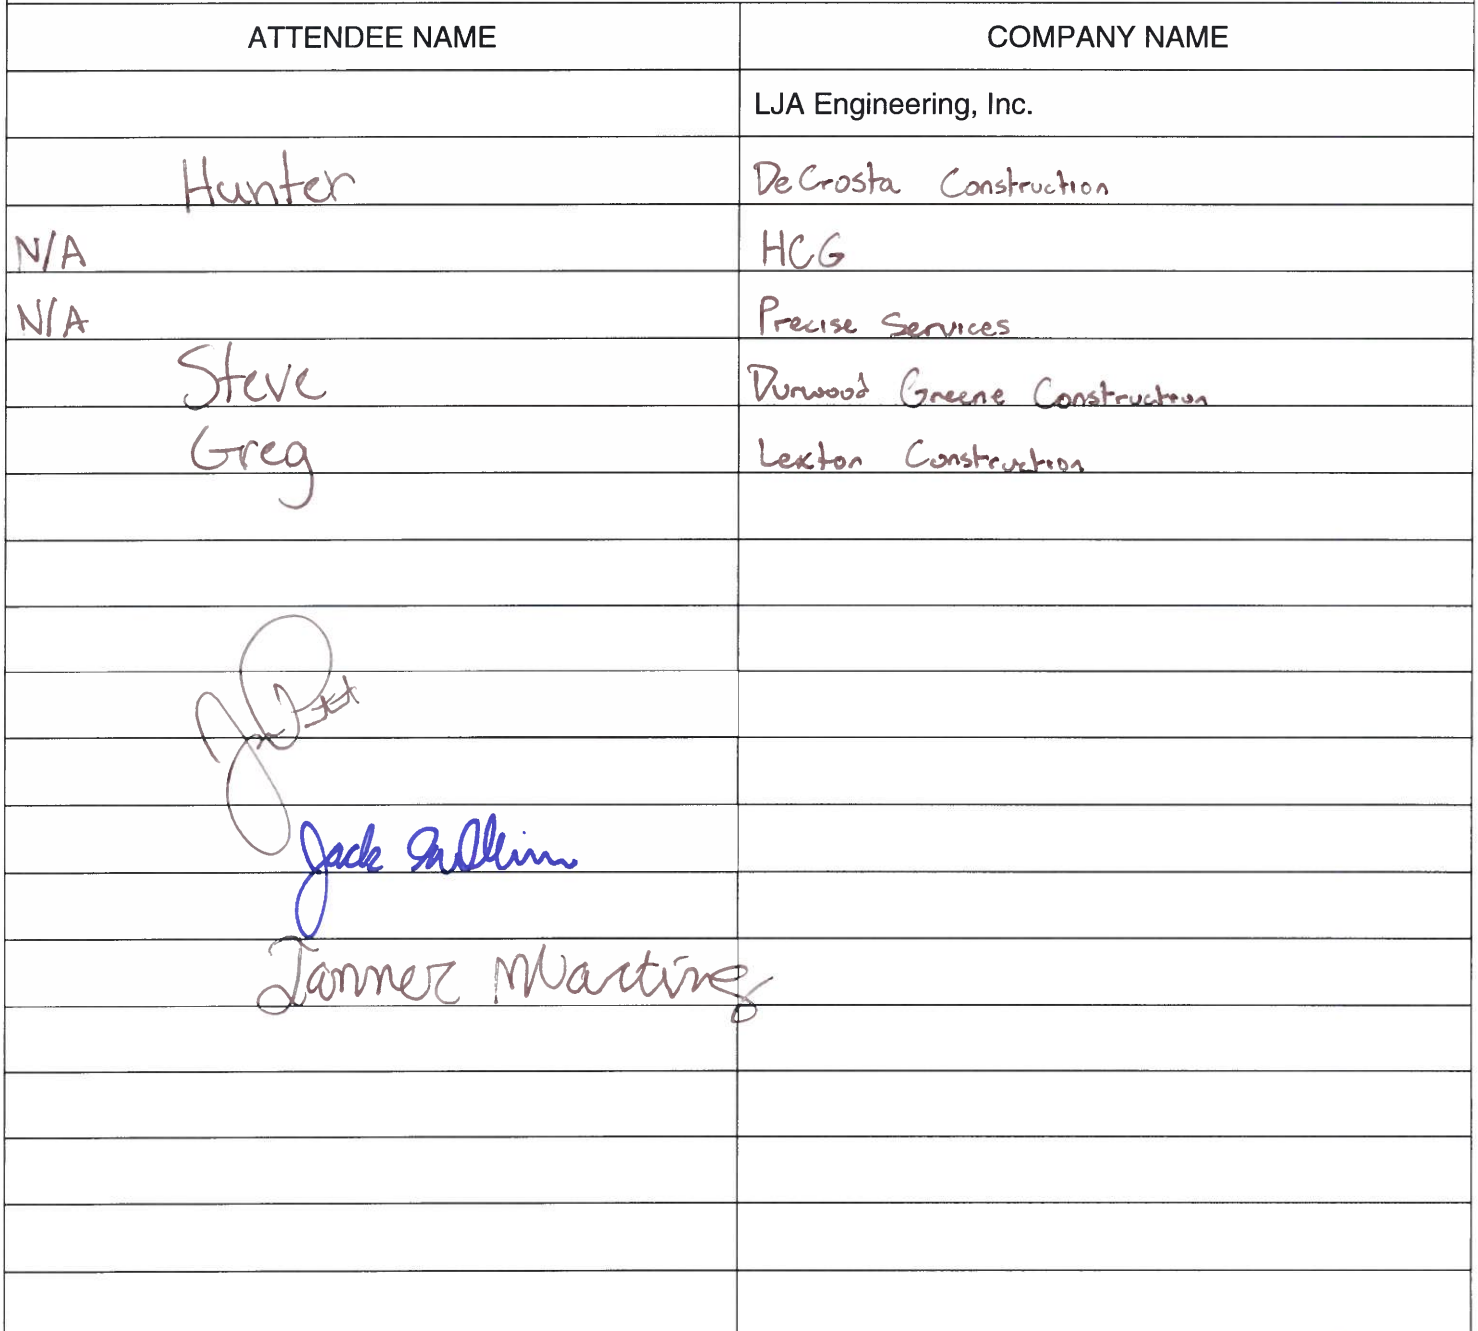 ATTENDEE NAME COMPANY NAME
LJA Engineering, Inc.
Hunter DeCrosta Construction
N/A HCG
N/A Precise Services
Steve Durwood Greene Construction
Greg Lexton Construction
Jack
Tanner